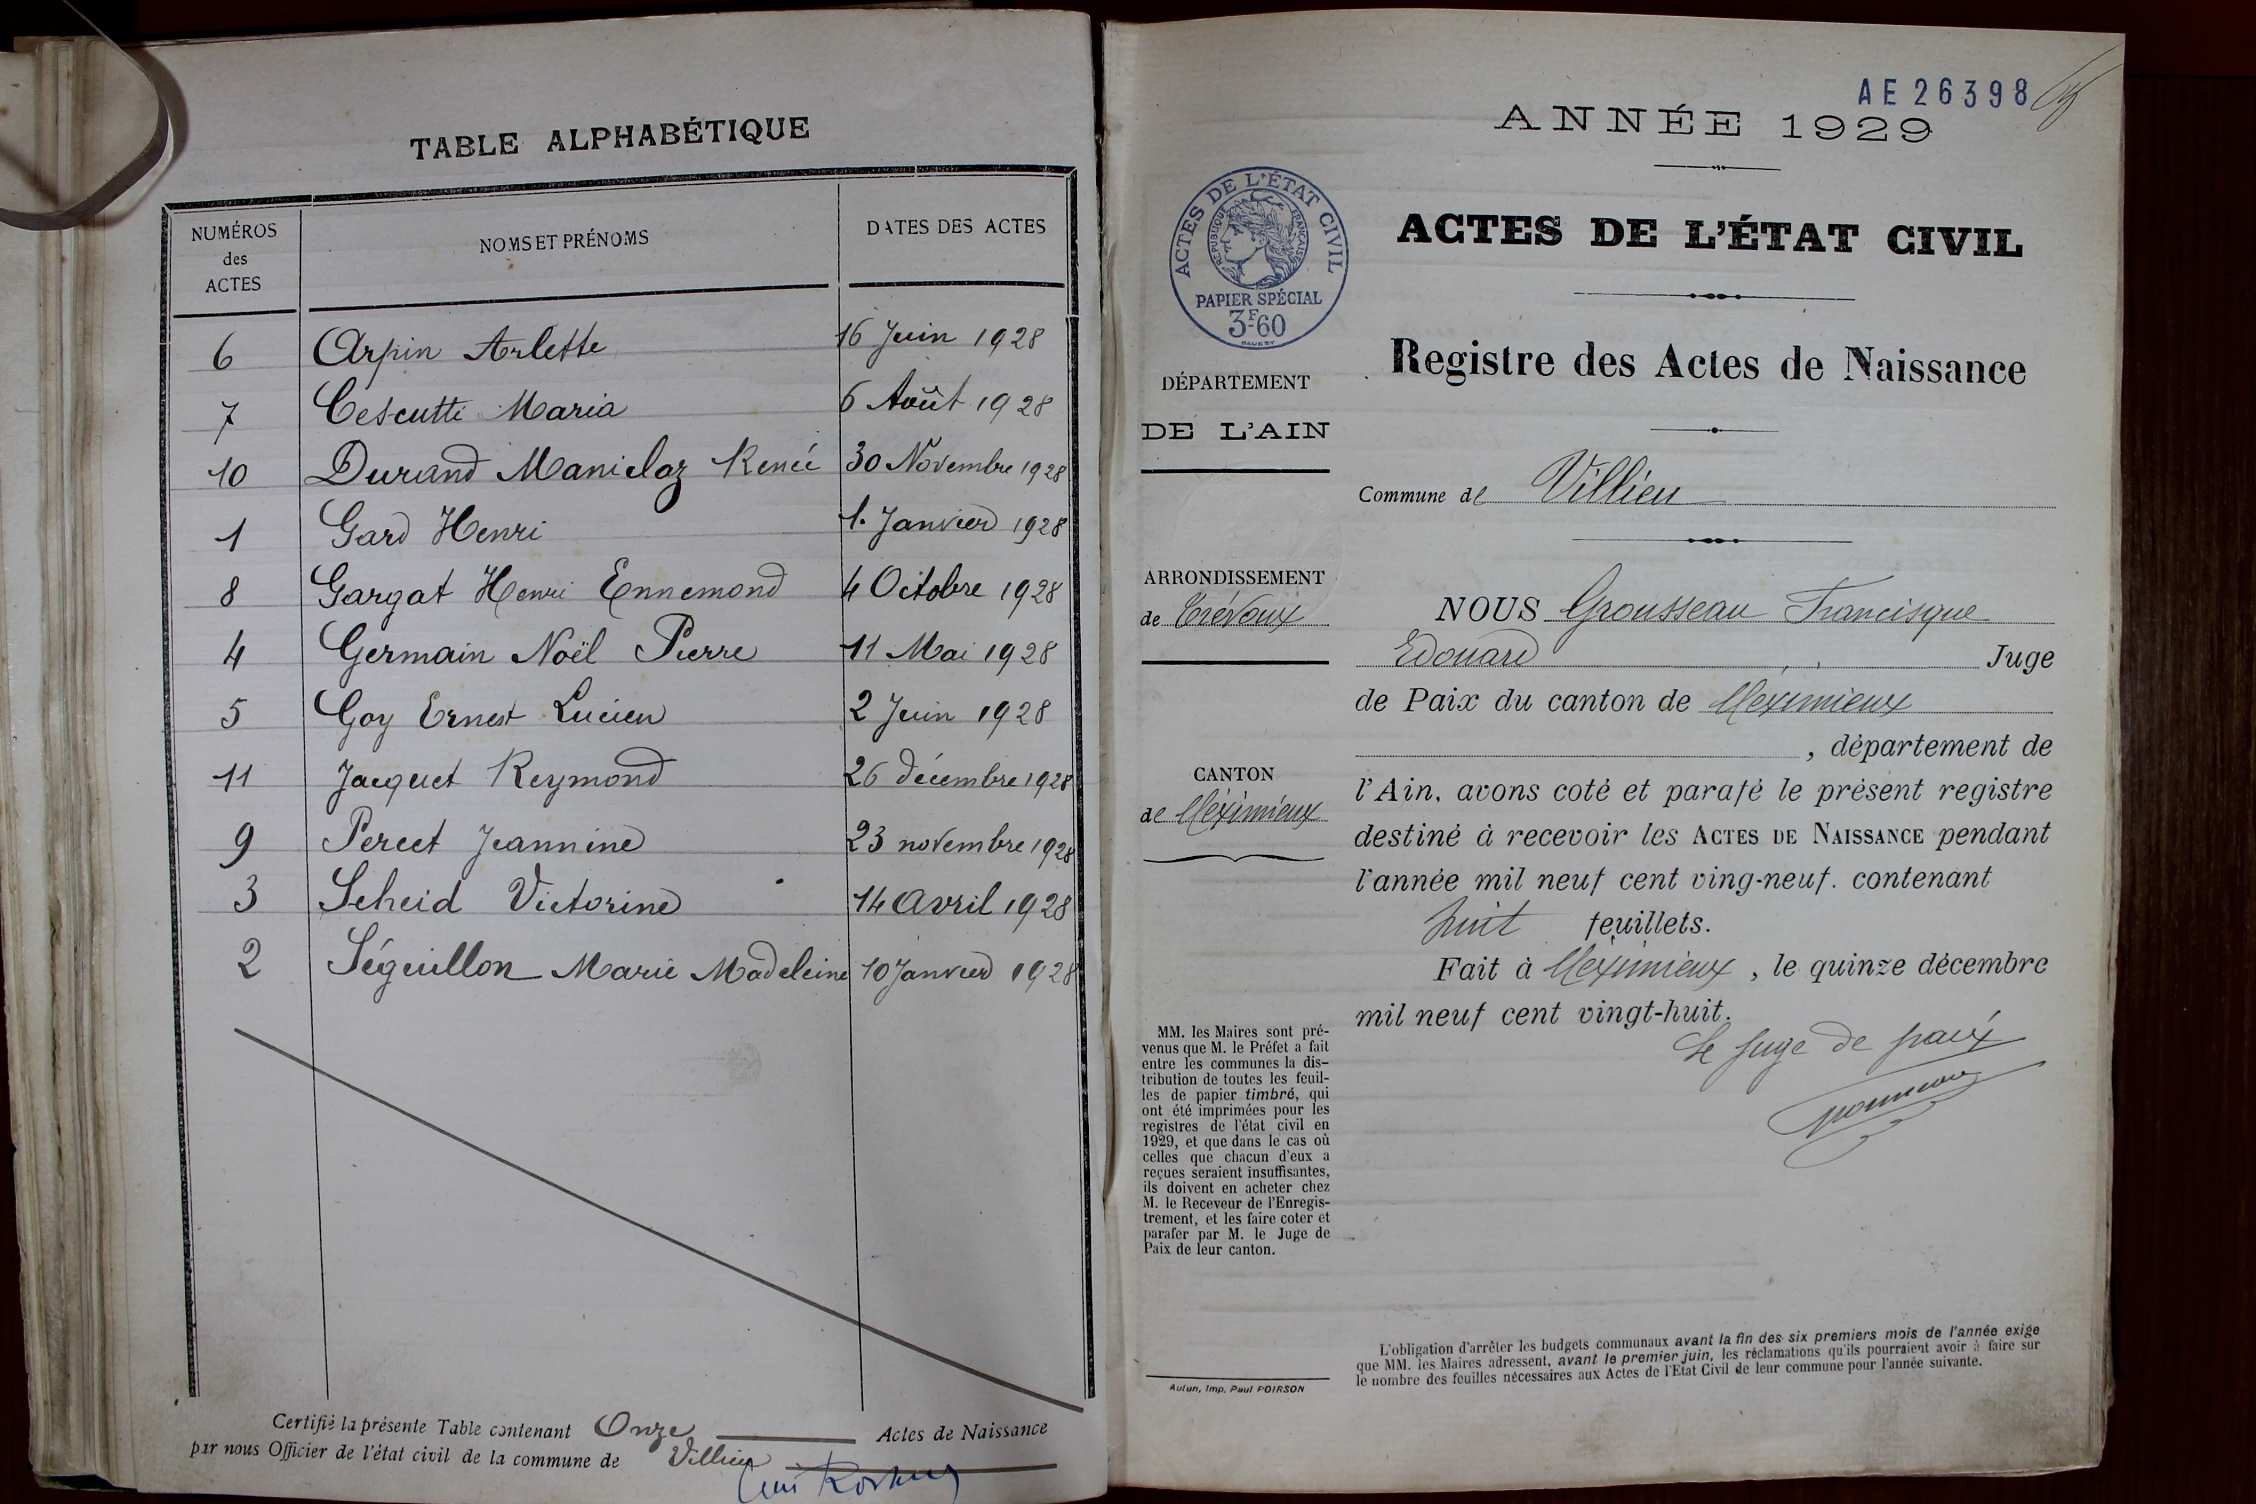 TABLE ALPHABÉTIQUE
NUMÉROS des ACTES
NOMS ET PRÉNOMS
DATES DES ACTES
6 Arpin Arlette 16 Juin 1928
7 Cescutti Maria 6 Août 1928
10 Durand Maniclaz Renée 30 Novembre 1928
1 Gard Henri 1. Janvier 1928
8 Gargat Henri Ennemond 4 Octobre 1928
4 Germain Noël Pierre 11 Mai 1928
5 Goy Ernest Lucien 2 Juin 1928
11 Jacquet Reymond 26 décembre 1928
9 Percet Jeannine 23 novembre 1928
3 Scheid Victorine 14 Avril 1928
2 Séguillon Marie Madeleine 10 Janvier 1928
Certifié la présente Table contenant Onze Actes de Naissance
par nous Officier de l'état civil de la commune de Villieu
AE 26398
ANNÉE 1929
ACTES DE L'ÉTAT CIVIL
RÉPUBLIQUE FRANÇAISE
PAPIER SPÉCIAL
3F60
ACTES DE L'ÉTAT CIVIL
Registre des Actes de Naissance
DÉPARTEMENT
DE L'AIN
Commune de Villieu
ARRONDISSEMENT
de Trévoux
CANTON
de Méximieux
NOUS Grousseau Francisque
Edouard Juge
de Paix du canton de Méximieux
, département de
l'Ain, avons coté et parafé le présent registre
destiné à recevoir les ACTES DE NAISSANCE pendant
l'année mil neuf cent ving-neuf. contenant
huit feuillets.
Fait à Méximieux, le quinze décembre
mil neuf cent vingt-huit.
Le Juge de paix
MM. les Maires sont pré-
venus que M. le Préfet a fait
entre les communes la dis-
tribution de toutes les feuil-
les de papier timbré, qui
ont été imprimées pour les
registres de l'état civil en
1929, et que dans le cas où
celles que chacun d'eux a
reçues seraient insuffisantes,
ils doivent en acheter chez
M. le Receveur de l'Enregis-
trement, et les faire coter et
parafer par M. le Juge de
Paix de leur canton.
Autun, Imp. Paul POIRSON
L'obligation d'arrêter les budgets communaux avant la fin des six premiers mois de l'année exige
que MM. les Maires adressent, avant le premier juin, les réclamations qu'ils pourraient avoir à faire sur
le nombre des feuilles nécessaires aux Actes de l'Etat Civil de leur commune pour l'année suivante.